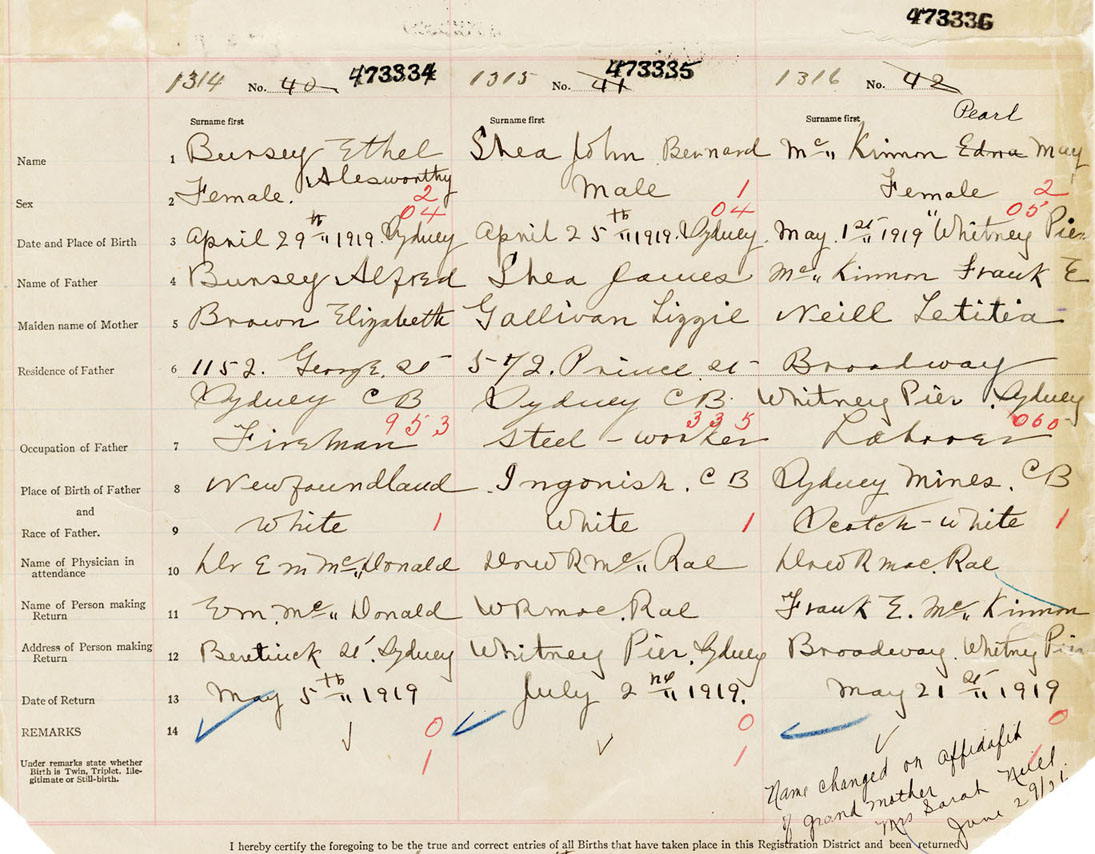 473336
1314 No. 40 473334 1315 No. 41 473335 1316 No. 42
Surname first Surname first Surname first Pearl
Name 1 Bursey Ethel Shea John Bernard Mc„ Kinnon Edna May
Alesworthy
Sex 2 Female. 2 Male 1 Female 2
04 04 05
Date and Place of Birth 3 April 29th„ 1919. Sydney April 25th„ 1919. Sydney. May. 1st„ 1919 Whitney Pier
Name of Father 4 Bursey Alfred Shea James Mc„ Kinnon Frank E
Maiden name of Mother 5 Brown Elizabeth Gallivan Lizzie Neill Letitia
Residence of Father 6 1152. George. St 572. Prince. St Broadway
Sydney CB Sydney CB. Whitney Pier. Sydney
953 335 060
Occupation of Father 7 Fireman Steel-worker Labrover
Place of Birth of Father 8 Newfoundland Ingonish. CB Sydney Mines. CB
and
Race of Father. 9 White 1 White 1 Scotch-White 1
Name of Physician in
attendance 10 Dr E M Mc„ Donald W R Mc„ Rae W R Mac. Rae
Name of Person making
Return 11 E. M. Mc„ Donald W R Mac. Rae Frank E. Mc„ Kinnon
Address of Person making
Return 12 St. Sydney Whitney Pier. Sydney Broadway. Whitney Pier
Date of Return 13 May 5th„ 1919 July 2nd„ 1919. May 21st„ 1919
REMARKS 14 0 0 0
Under remarks state whether
Birth is Twin, Triplet, Ille-
gitimate or Still-birth. 1 1 1
Name changed on affidafit
of grand mother
Mrs Sarah Neill.
June 29/21
I hereby certify the foregoing to be the true and correct entries of all Births that have taken place in this Registration District and been returned